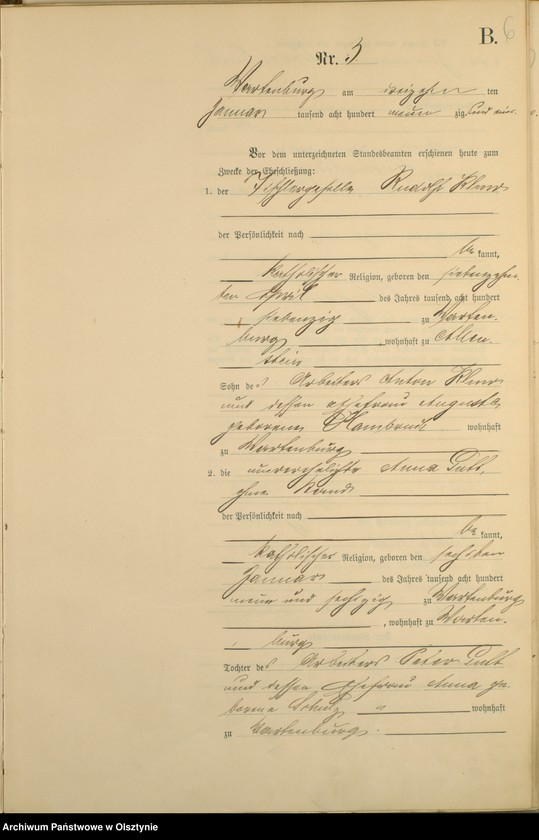 B. 6
Nr. 3
Wartenburg am dreizehn ten
Januar tausend acht hundert neun zig und
Vor dem unterzeichneten Standesbeamten erschienen heute zum
Zwecke der Eheschließung:
1. der Tischlergeselle Rudolf
der Persönlichkeit nach
be kannt,
katholischer Religion, geboren den siebenzehn-
ten April des Jahres tausend acht hundert
siebenzig zu Warten-
burg, wohnhaft zu Allen-
stein
Sohn des Arbeiters Anton
und dessen Ehefrau Auguste
geborene wohnhaft
zu Wartenburg
2. die unverehelichte Anna
ohne Stand
der Persönlichkeit nach
be kannt,
katholischer Religion, geboren den sechsten
Januar des Jahres tausend acht hundert
neun und sechszig zu Wartenburg
, wohnhaft zu Warten-
burg
Tochter des Arbeiters Peter
und dessen Ehefrau Anna ge-
borene Schulz wohnhaft
zu Wartenburg.
Archiwum Państwowe w Olsztynie